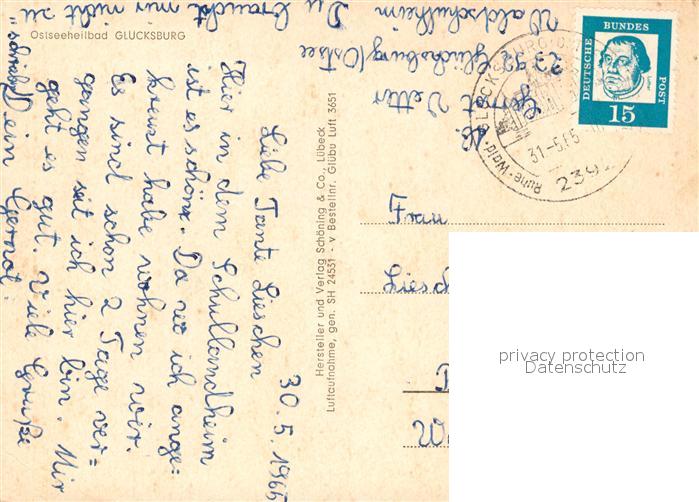 Ostseeheilbad GLÜCKSBURG
30. 5. 1965
Liebe Tante Lieschen
Hier in dem Schullandheim
ist es schön. Da wo ich ange=
kreuzt habe wohnen wir.
Es sind schon 2 Tage ver=
gangen seit ich hier bin. Mir
geht es gut. Viele Grüße
Dein Gernot.
Du brauchst mir nicht zu
"schreiben
Ab. Gernot Vetter
2392 Glücksburg/Ostsee
Waldschulheim
Hersteller und Verlag Schöning & Co., Lübeck
Luftaufnahme, gen. SH 24531 - v Bestellnr. Glübu Luft 3651
DEUTSCHE BUNDES POST
Luther
15
GLÜCKSBURG
Ruhe-Wald-
31-5.65
239
Frau
privacy protection
Datenschutz